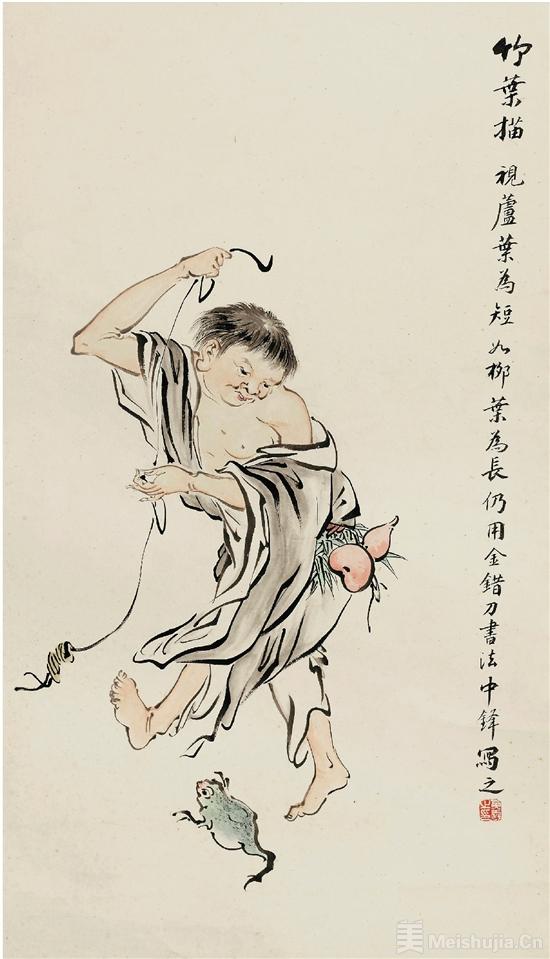 竹葉描 視蘆葉為短如柳葉為長仍用金錯刀書法中鋒寫之
美 Meishujia.Cn